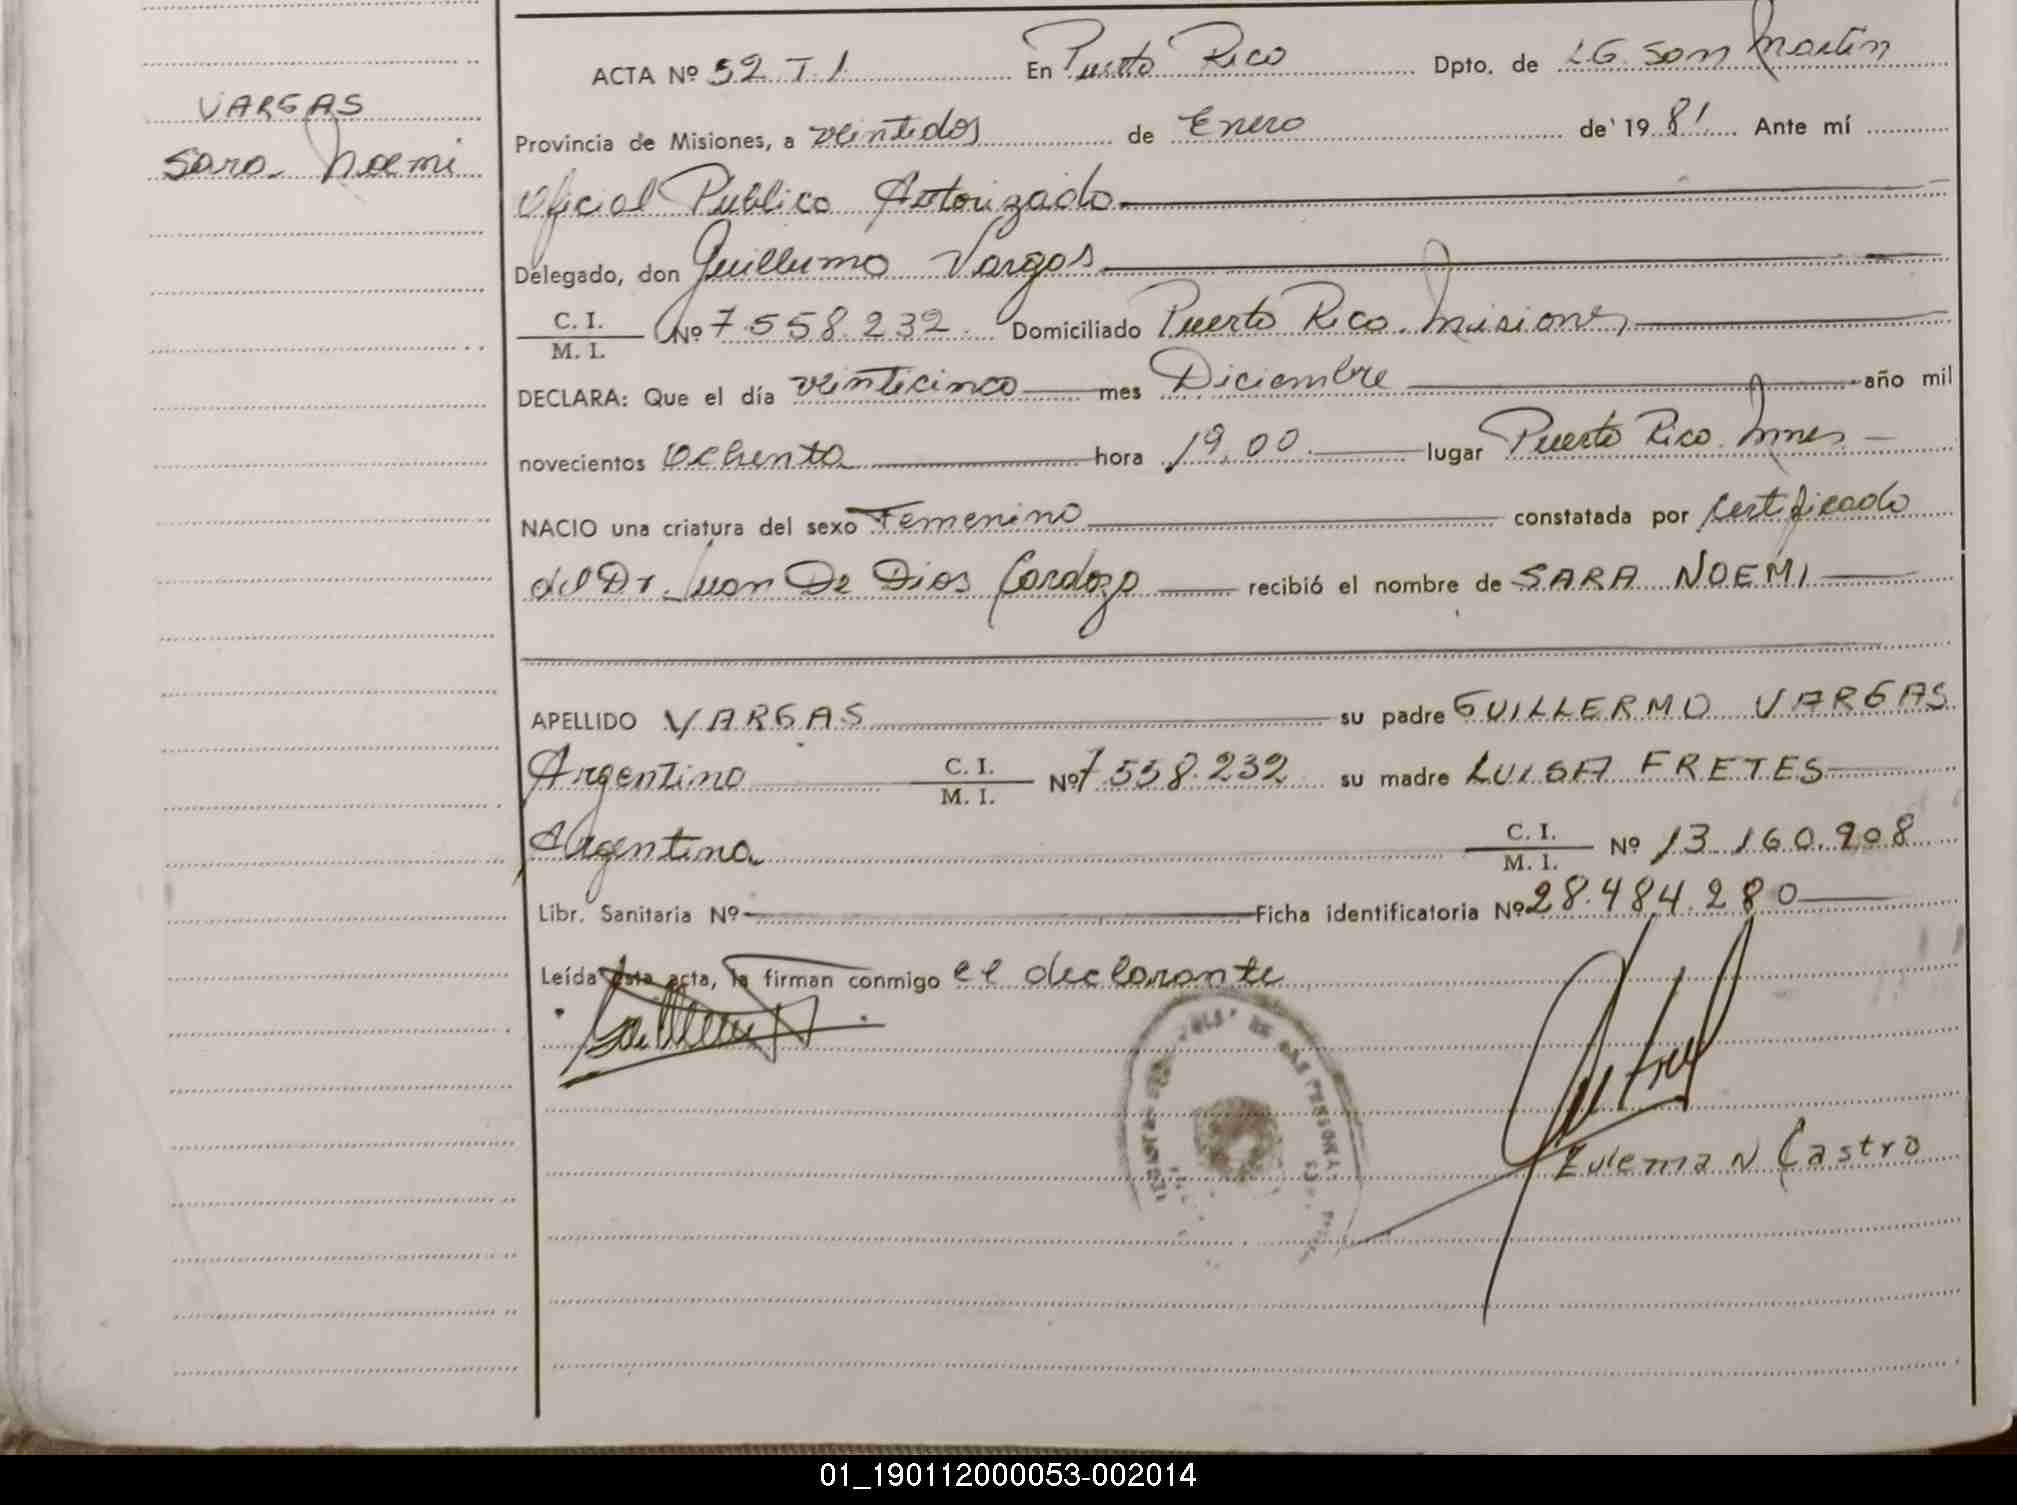 VARGAS
Sara Noemi
ACTA Nº 52 T.1 En Puerto Rico Dpto. de L.G. San Martín
Provincia de Misiones, a veintidos de Enero de 19 81 Ante mí
Oficial Público Autorizado
Delegado, don Guillermo Vargas
C. I.
M. I.
Nº 7.558.232 Domiciliado Puerto Rico. Misiones
DECLARA: Que el día veinticinco mes Diciembre año mil
novecientos Ochenta hora 19,00 lugar Puerto Rico. Mnes
NACIO una criatura del sexo Femenino constatada por certificado
del Dr. Juan De Dios Cardozo recibió el nombre de SARA NOEMI
APELLIDO VARGAS su padre GUILLERMO VARGAS
Argentino C. I. M. I. Nº 7.558.232 su madre LUISA FRETES
Argentina C. I. M. I. Nº 13.160.908
Libr. Sanitaria Nº Ficha identificatoria Nº 28.484.280
Leída esta acta, la firman conmigo el declarante
Eulema N Castro
01_190112000053-002014